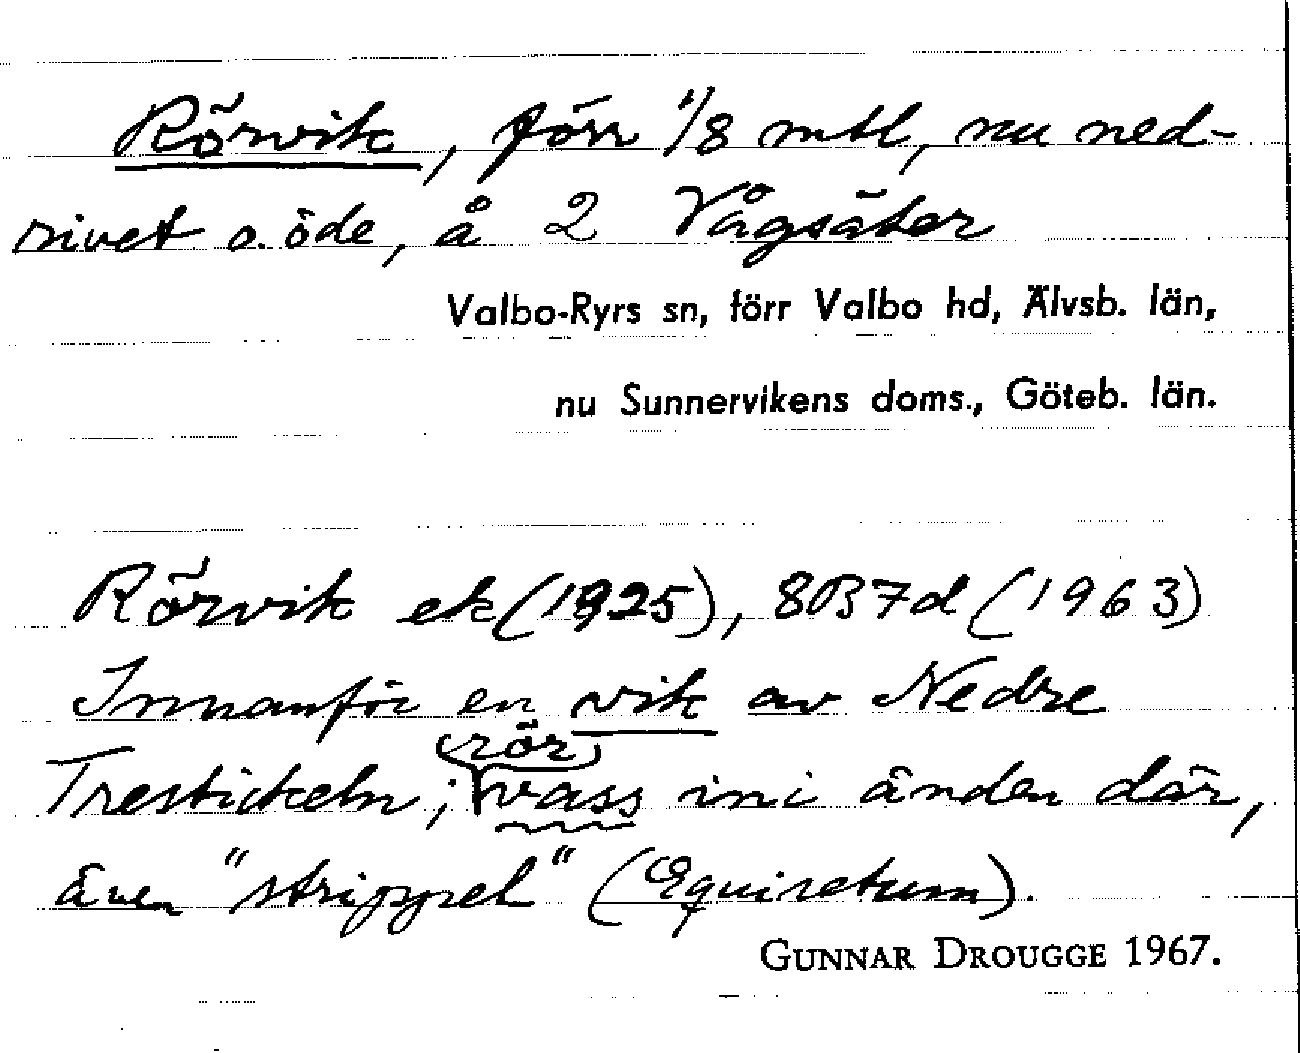 Rörvik, förr 1/8 mtl, nu ned-
rivet o. öde, å 2 Vågsäter
Valbo-Ryrs sn, förr Valbo hd, Älvsb. län,
nu Sunnervikens doms., Göteb. län.
Rörvik ek (1925), 8B7d (1963)
Innanför en vik av Nedre
Trestickeln; (rör) vass ini änden där,
även "strippel" (Equisetum).
GUNNAR DROUGGE 1967.